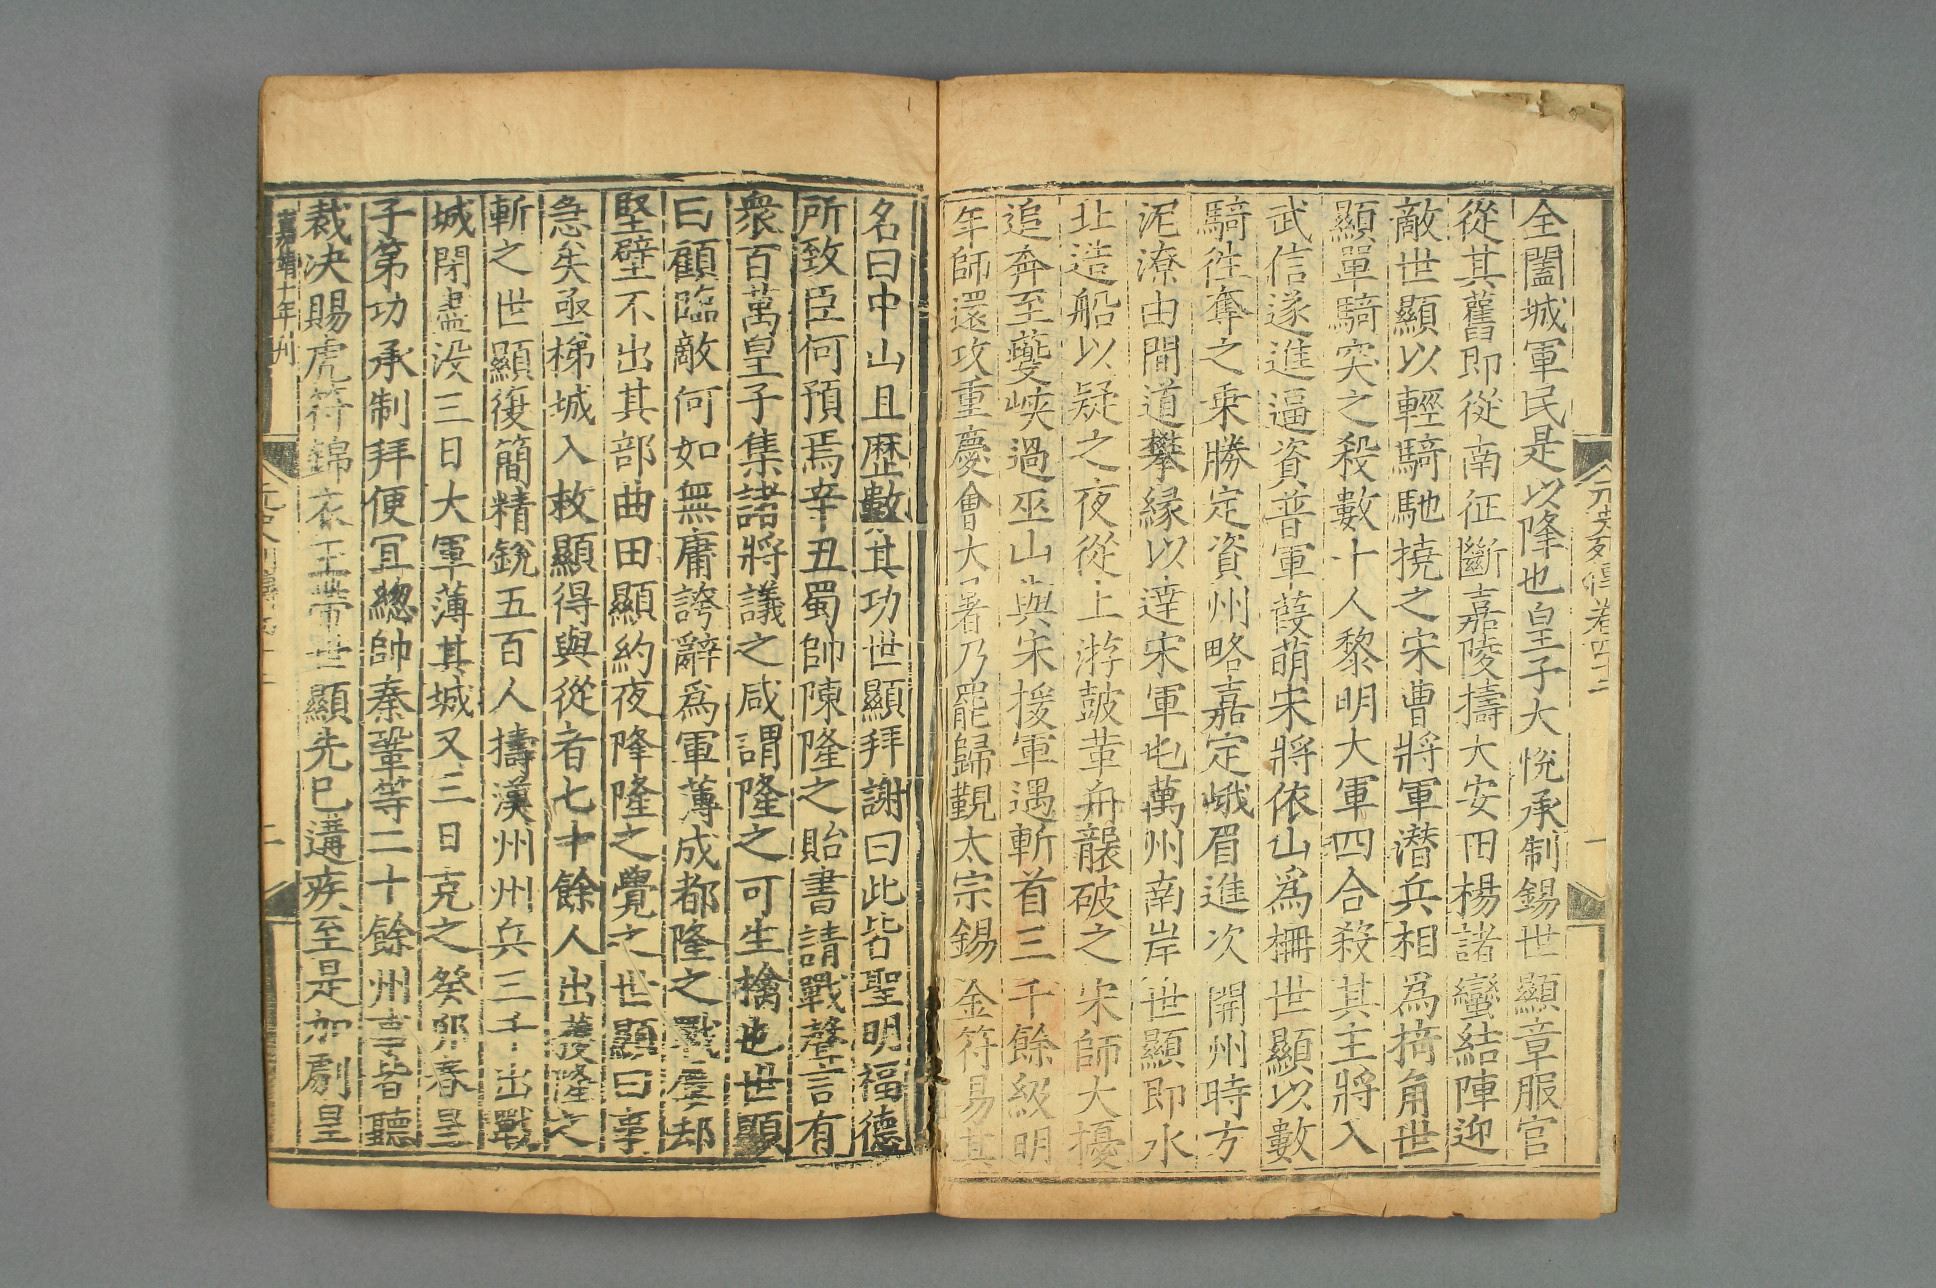 元史列傳卷四十二
一
全闔城軍民是以降也皇子大悅承制錫世顯章服官
從其舊即從南征斷嘉陵擣大安田楊諸蠻結陣迎
敵世顯以輕騎馳撓之宋曹將軍潛兵相爲掎角世
顯單騎突之殺數十人黎明大軍四合殺其主將入
武信遂進逼資普軍葭萌宋將依山爲柵世顯以數
騎徃奪之乗勝定資州略嘉定峨眉進次開州時方
泥潦由間道攀緣以達宋軍屯萬州南岸世顯即水
北造船以疑之夜從上游鼓革舟襲破之宋師大擾
追奔至夔峽過巫山與宋援軍遇斬首三千餘級明
年師還攻重慶會大暑乃罷歸覲太宗錫金符易其
名曰中山且歷數其功世顯拜謝曰此皆聖明福德
所致臣何預焉辛丑蜀帥陳隆之貽書請戰聲言有
衆百萬皇子集諸將議之咸謂隆之可生擒也世顯
曰顧臨敵何如無庸誇辭爲軍薄成都隆之戰屢却
堅壁不出其部曲田顯約夜降隆之覺之世顯曰事
急矣亟梯城入救顯得與從者七十餘人出獲隆之
斬之世顯復簡精銳五百人擣漢州州兵三千出戰
城閉盡沒三日大軍薄其城又三日克之癸卯春皇
子第功承制拜便宜總帥秦鞏等二十餘州事皆聽
裁决賜虎符錦衣玉帶世顯先已遘疾至是加劇皇
嘉靖十年刊
二